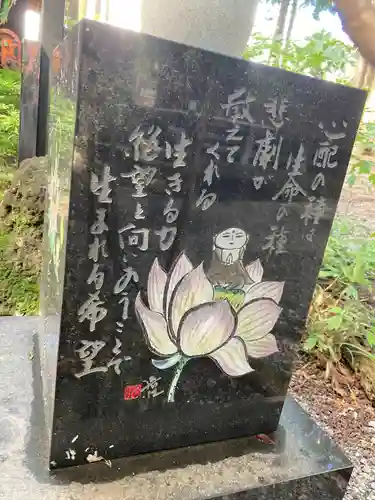 心配の種は
生命の種
悲劇が
教えて
くれる
生きる力
絶望と向いあうことで
生まれる希望